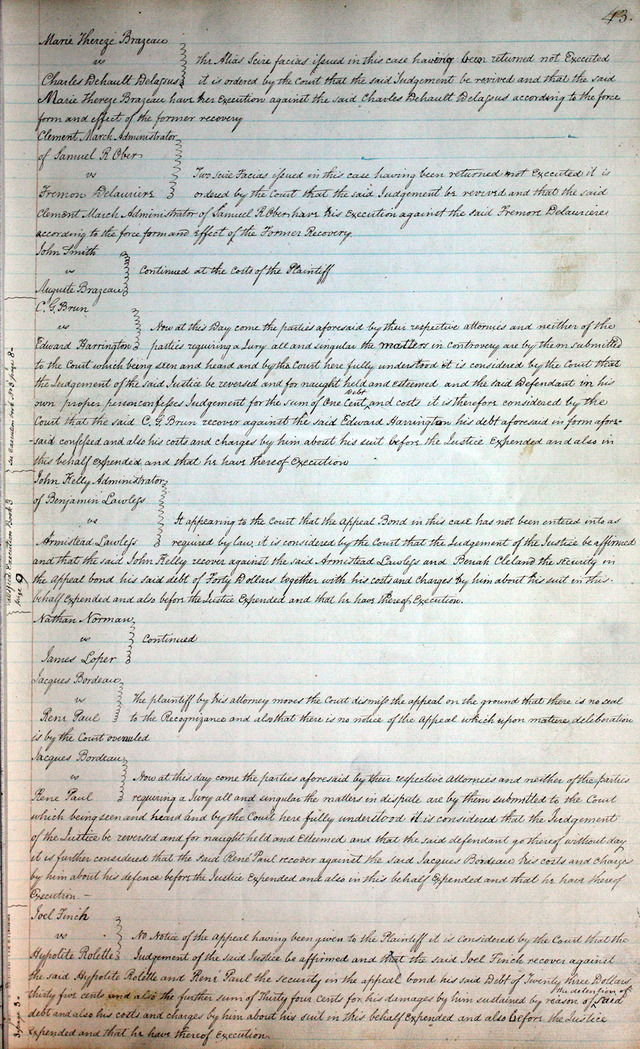 43.
Marie Thereze Brazeau
vs
the Alias Scire facias issued in this case having been returned not Executed
Charles Dehault Delassus
it is ordered by the Court that the said Judgement be revived and that the said
Marie Thereze Brazeau have her Execution against the said Charles Dehault Delassus according to the force
form and effect of the former recovery
Clement March Administrator
of Samuel R Ober
vs
Two Scire Facias issued in this case having been returned not Executed it is
Fremon Delauriere
ordered by the Court that the said Judgement be revived and that the said
Clement March Administrator of Samuel R Ober have his Execution against the said Fremon Delauriere
according to the force form and Effect of the Former Recovery
John Smith
vs
Continued at the Costs of the Plaintiff
Auguste Brazeau
C. G. Brun
vs
Now at this Day come the parties aforesaid by their respective attornies and neither of the
Edward Harrington
parties requiring a Jury all and singular the matters in controversy are by them submitted
to the Court which being seen and heard and by the Court here fully understood it is considered by the Court that
the Judgement of the said Justice be reversed and for naught held and esteemed and the said Defendant in his
own proper person confesses Judgement for the sum of One Cent Debt and costs it is therefore considered by the
Court that the said C. G. Brun recover against the said Edward Harrington his debt aforesaid in form afore-
said confessed and also his costs and charges by him about his suit before the Justice Expended and also in
this behalf expended and that he have thereof Execution
John Kelly Administrator
of Benjamin Lawless
vs
It appearing to the Court that the Appeal Bond in this case has not been entered into as
Armistead Lawless
required by law, it is considered by the Court that the Judgement of the Justice be affirmed
and that the said John Kelly recover against the said Armistead Lawless and Benah Cleland the security in
the Appeal bond his said debt of Forty Dollars together with his costs and charges by him about his suit in this
behalf Expended and also before the Justice Expended and that he have thereof Execution.
Nathan Norman
vs
Continued
James Loper
Jacques Bordeau
vs
The plaintiff by his attorney moves the Court dismiss the appeal on the ground that there is no seal
René Paul
to the Recognizance and also that there is no notice of the Appeal which upon mature deliberation
is by the Court overruled
Jacques Bordeau
vs
Now at this day come the parties aforesaid by their respective Attornies and neither of the parties
Rene Paul
requiring a Jury all and singular the matters in dispute are by them submitted to the Court
which being seen and heard and by the Court here fully understood it is considered that the Judgement
of the Justice be reversed and for naught held and Esteemed and that the said defendant go thereof without day
it is further considered that the said René Paul recover against the said Jacques Bordeau his costs and charges
by him about his defence before the Justice Expended and also in this behalf Expended and that he have thereof
Execution —
Joel Finch
vs
No Notice of the Appeal having been given to the Plaintiff it is considered by the Court that the
Hypolite Rolette
Judgement of the said Justice be affirmed and that the said Joel Finch recover against
the said Hypolite Rolette and René Paul the security in the appeal bond his said Debt of Twenty three Dollars
thirty five cent and also the further sum of Thirty four cents for his damages by him sustained by reason of the detention of said
debt and also his costs and charges by him about his suit in this behalf Expended and also before the Justice
Expended and that he have thereof Execution.
See Execution book No 3 page 8-
Satisfied Execution Book 3
page 9
3 page 3-